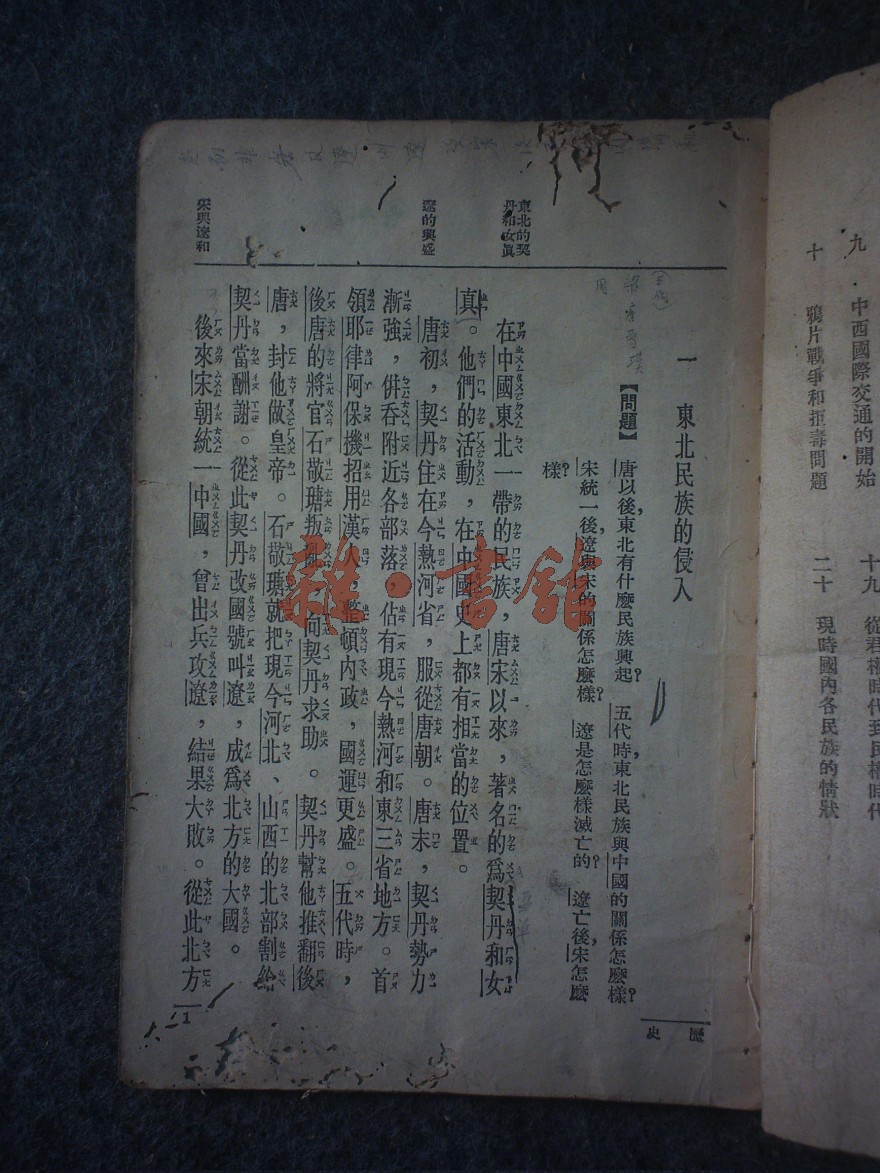 九　中西國際交通的開始
十　鴉片戰爭和拒毒問題
十九　從君權時代到民權時代
二十　現時國內各民族的情狀
歷史
一　東北民族的侵入
【問題】唐以後，東北有什麼民族興起？　五代時，東北民族與中國的關係怎麼樣？
宋統一後，遼與宋的關係怎麼樣？　遼是怎麼樣滅亡的？　遼亡後，宋怎麼
樣？
東北的契
丹和女眞
在中國東北一帶的民族，唐宋以來，著名的爲契丹和女
眞。他們的活動，在中國史上都有相當的位置。
遼的興盛
唐初，契丹住在今熱河省，服從唐朝。唐末，契丹勢力
漸強，併吞附近各部落，佔有現今熱河和東三省地方。首
領耶律阿保機招用漢人，整頓內政，國運更盛。五代時，
後唐的將官石敬瑭叛亂，向契丹求助。契丹幫他推翻後
唐，封他做皇帝。石敬瑭就把現今河北、山西的北部割給
契丹當酬謝。從此契丹改國號叫遼，成爲北方的大國。
宋與遼和
後來宋朝統一中國，曾出兵攻遼，結果大敗。從此北方
一
雜·書館